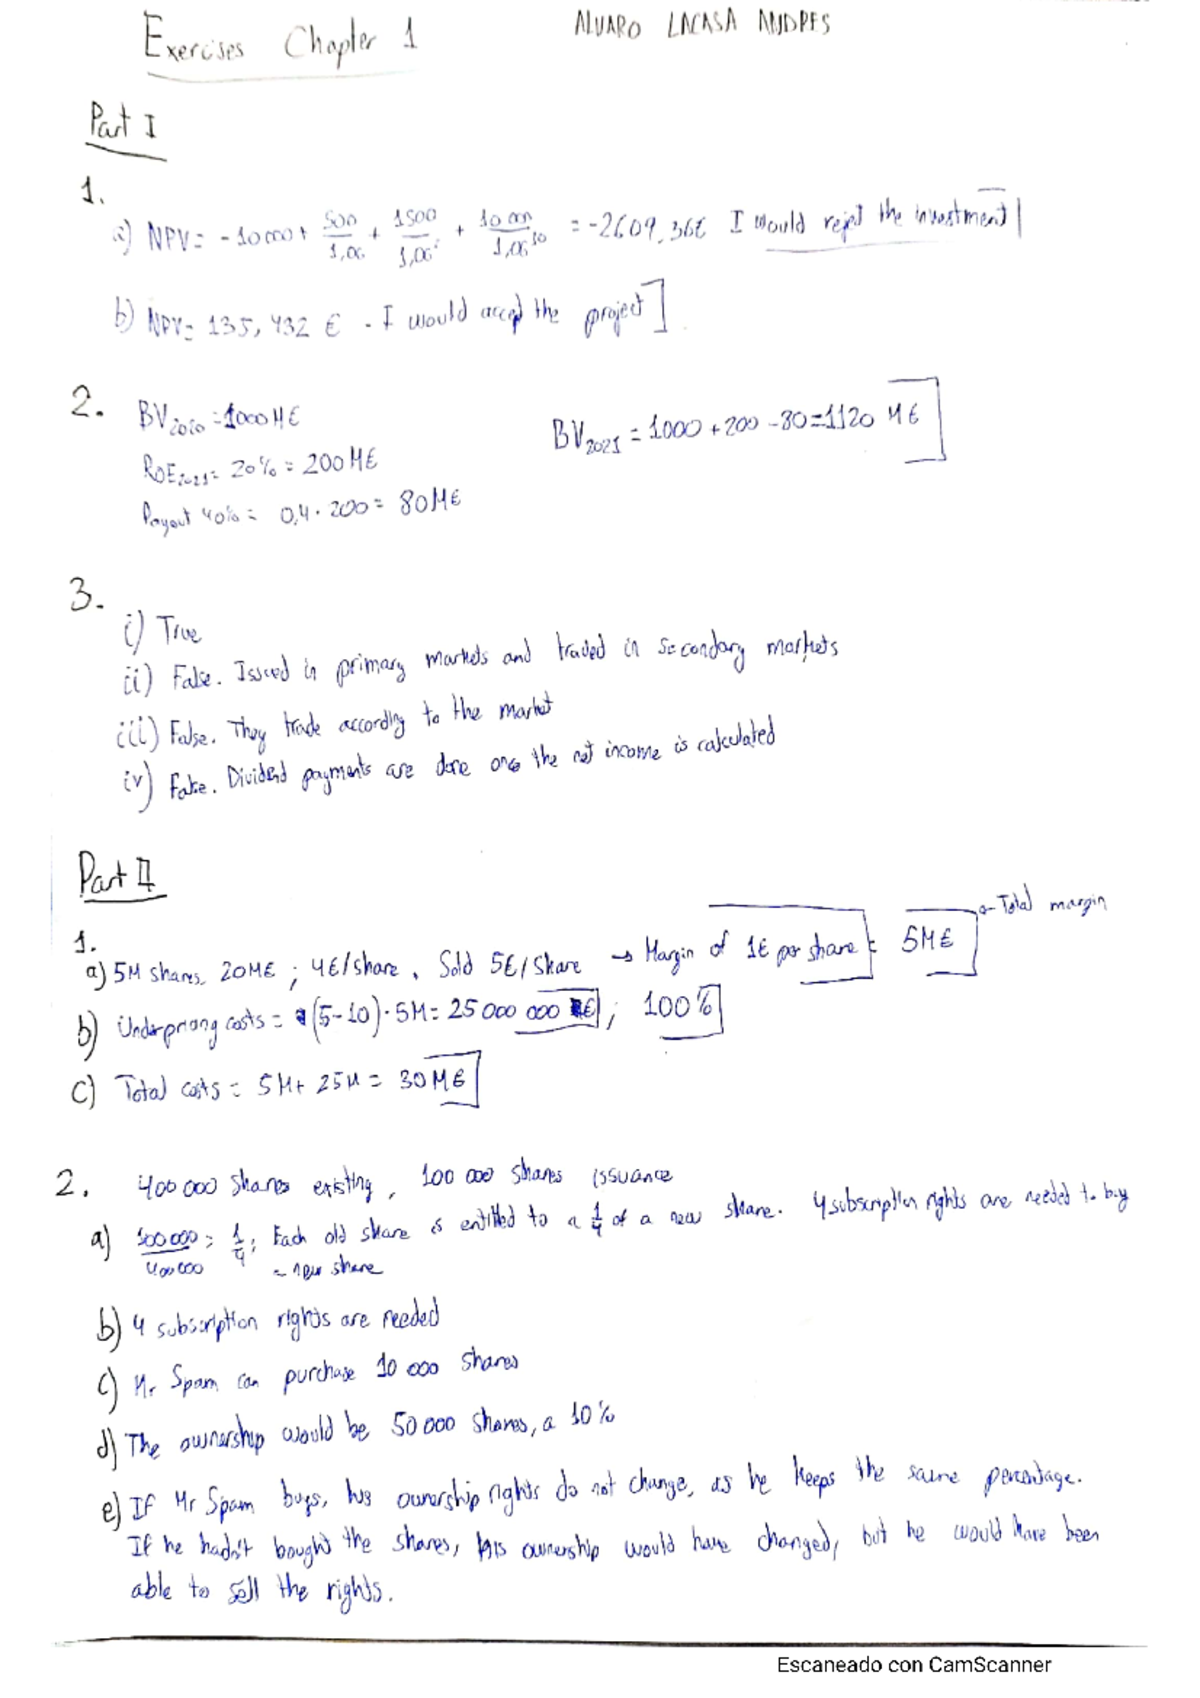 Exercises Chapter 1
ALVARO LACASA ANDRES
Part I
1.
a) NPV = -10000 + 500/1,06 + 1500/1,06² + 10000/1,06¹⁰ = -2609,36€ I would reject the investment
b) NPV = 135,432 € - I would accept the project
2. BV2020 = 1000M€
BV2021 = 1000 + 200 - 80 = 1120 M€
ROE2021 = 20% = 200M€
Payout 40% = 0,4 · 200 = 80M€
3.
i) True
ii) False. Issued in primary markets and traded in secondary markets
iii) False. They trade according to the market
iv) False. Dividend payments are done once the net income is calculated
Part II
1.
a) 5M shares, 20M€ ; 4€/share, Sold 5€/share → Margin of 1€ per share = 5M€ → Total margin
b) Underpricing costs = (5-10) · 5M = 25 000 000 € ; 100%
c) Total costs = 5M + 25M = 30M€
2. 400 000 shares existing, 100 000 shares issuance
a) 100 000/400 000 = 1/4; Each old share is entitled to a 1/4 of a new share. 4 subscription rights are needed to buy
a new share
b) 4 subscription rights are needed
c) Mr Spam can purchase 10 000 shares
d) The ownership would be 50 000 shares, a 10%
e) If Mr Spam buys, his ownership rights do not change, as he keeps the same percentage.
If he hadn't bought the shares, his ownership would have changed, but he would have been
able to sell the rights.
Escaneado con CamScanner